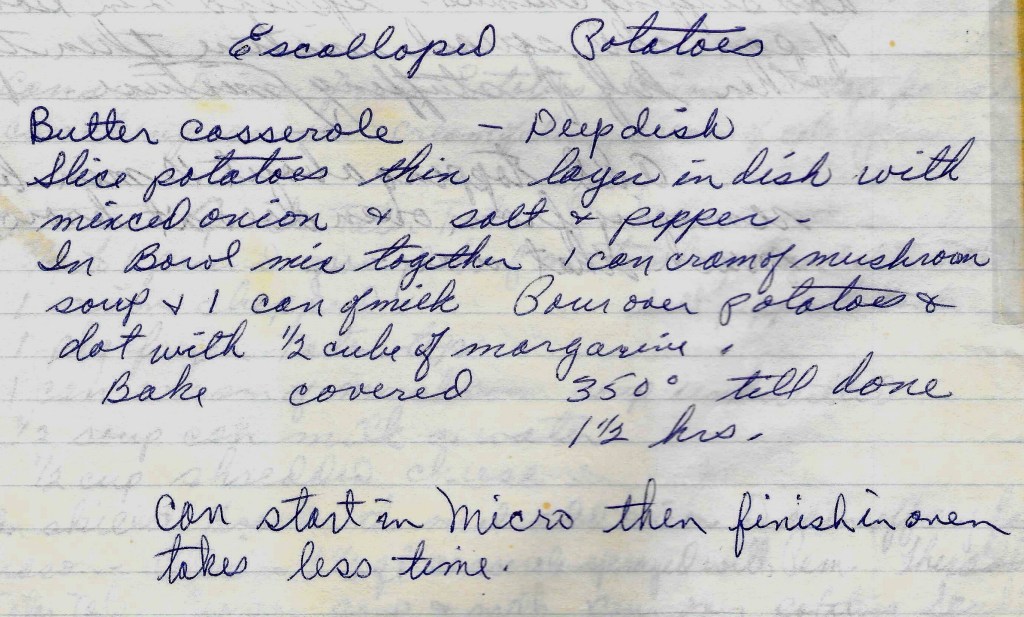 Escalloped Potatoes
Butter casserole - Deep dish
Slice potatoes thin layer in dish with
minced onion & salt & pepper -
In Bowl mix together 1 can cram of mushroom
soup & 1 can of milk Pour over potatoes &
dot with 1/2 cube of margarine.
Bake covered 350° till done
1 1/2 hrs.
1/2 cup shredded cheese
Can start in Micro then finish in oven
takes less time.